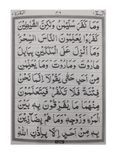 وَمَا كَفَرَ سُلَيْمٰنُ وَلٰكِنَّ الشَّيٰطِيْنَ
كَفَرُوْا يُعَلِّمُوْنَ النَّاسَ السِّحْرَ
وَمَآ اُنْزِلَ عَلَى الْمَلَكَيْنِ بِبَابِلَ
هَارُوْتَ وَمَارُوْتَ وَمَا يُعَلِّمٰنِ
مِنْ اَحَدٍ حَتّٰى يَقُوْلَآ اِنَّمَا نَحْنُ
فِتْنَةٌ فَلَا تَكْفُرْ فَيَتَعَلَّمُوْنَ
مِنْهُمَا مَا يُفَرِّقُوْنَ بِهٖ بَيْنَ
الْمَرْءِ وَزَوْجِهٖ وَمَا هُمْ بِضَآرِّيْنَ
بِهٖ مِنْ اَحَدٍ اِلَّا بِاِذْنِ اللّٰهِ